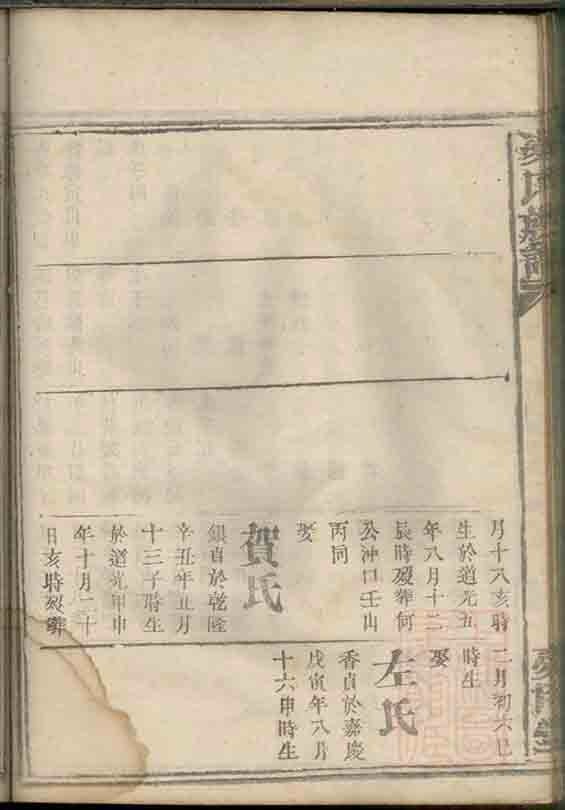 氏族譜
月十八亥時
生於道光五
年八月十二
辰時歿葬何
公沖口壬山
丙向
娶
賀氏
銀貞於乾隆
辛丑年五月
十三子時生
於道光甲申
年十月二十
日亥時歿葬
二月初六巳
時生
娶
左氏
香貞於嘉慶
戊寅年八月
十六申時生